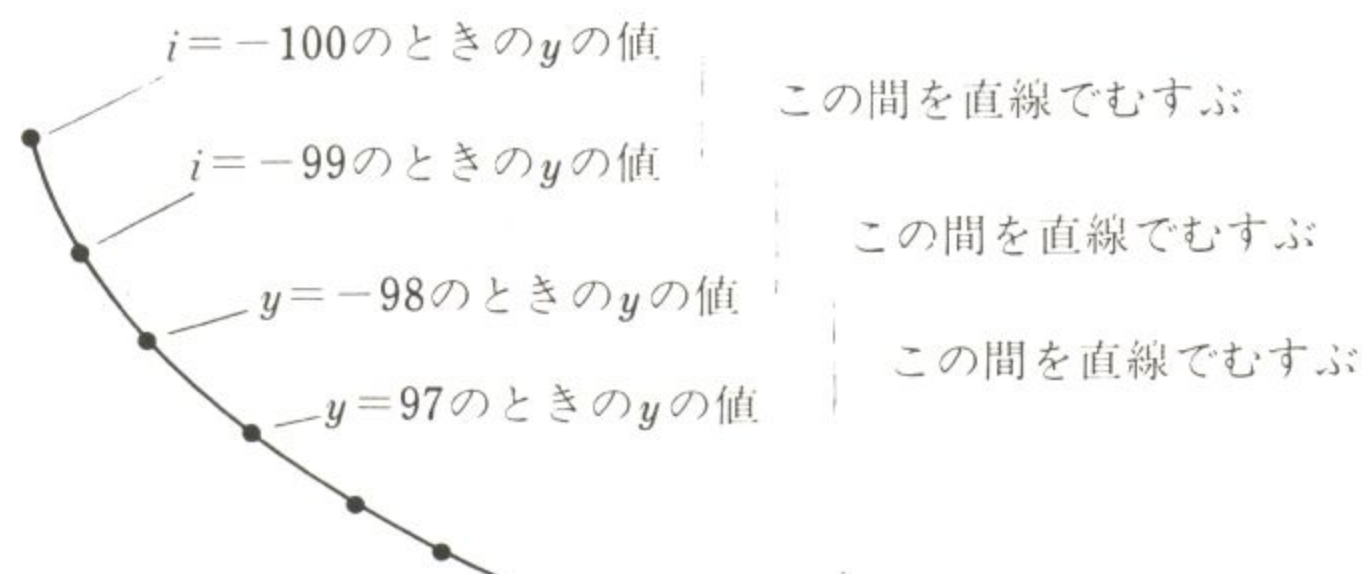 i=-100のときのyの値
この間を直線でむすぶ
i=-99のときのyの値
この間を直線でむすぶ
y=-98のときのyの値
この間を直線でむすぶ
y=97のときのyの値